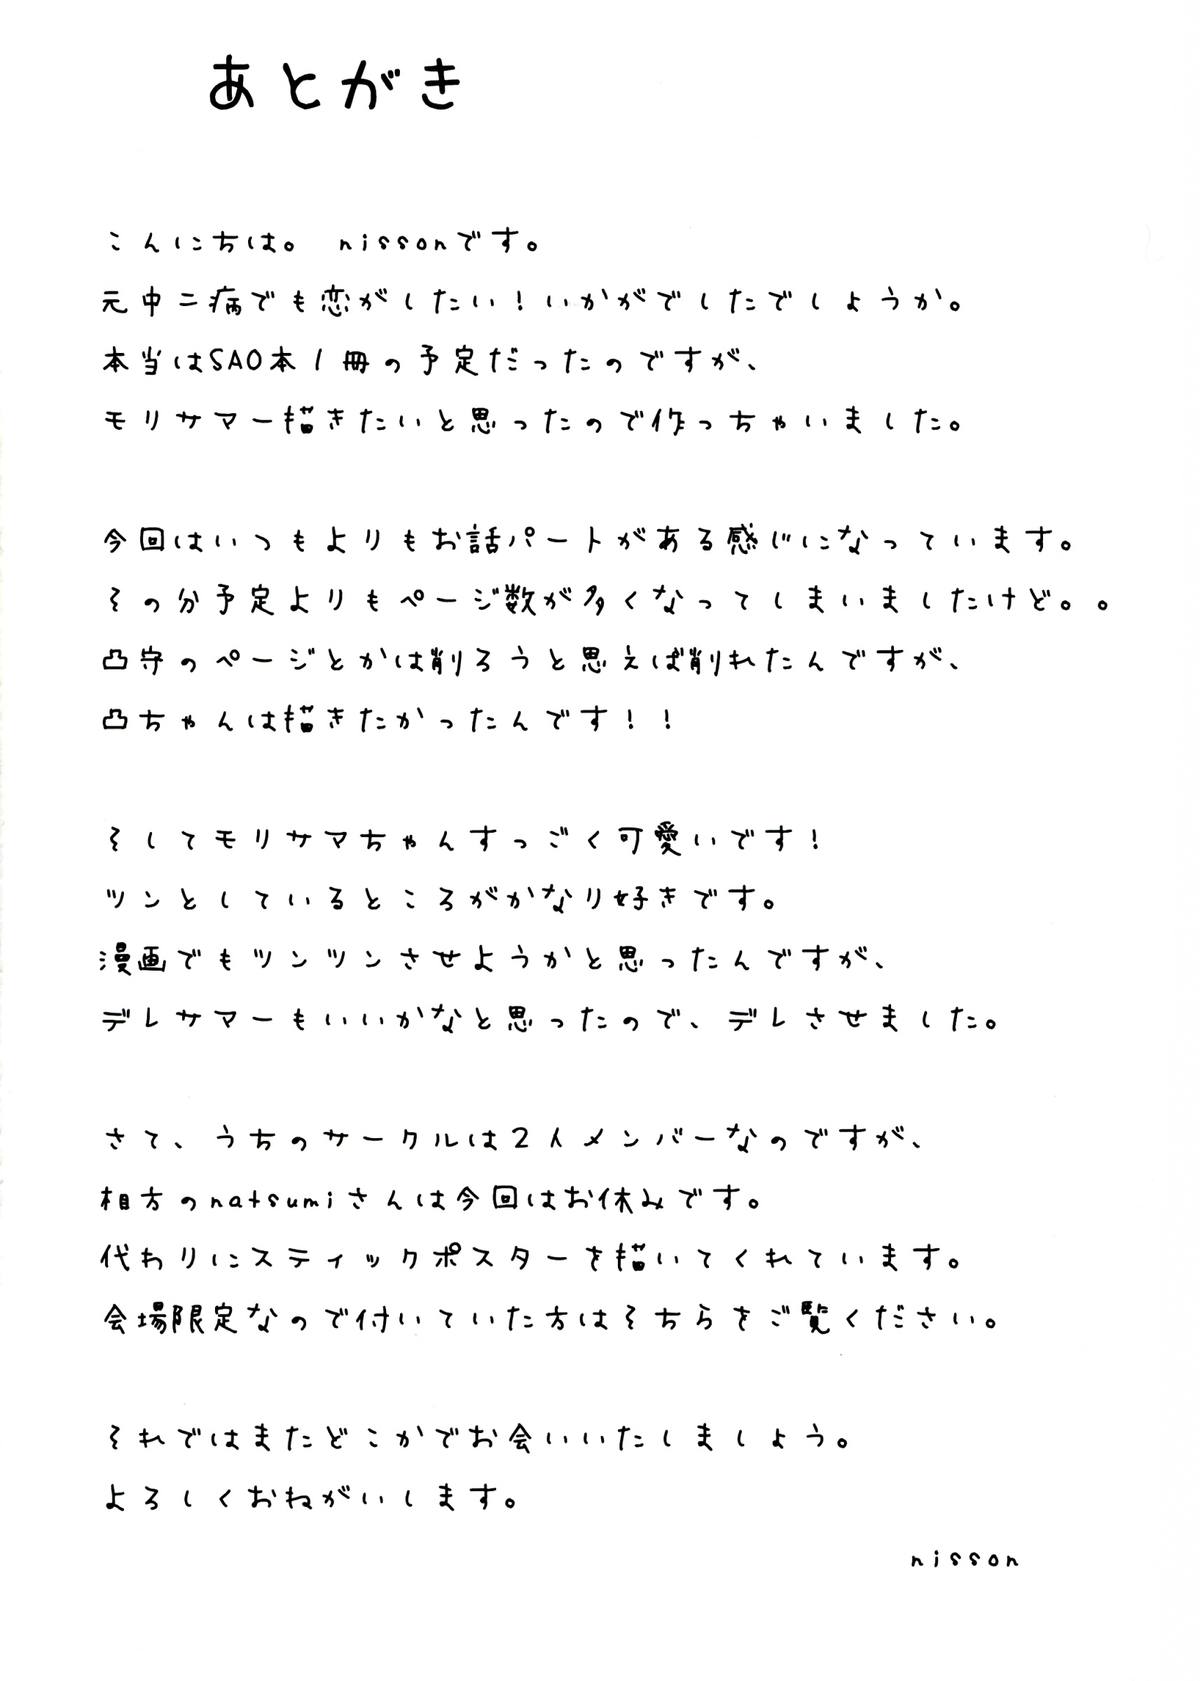 あとがき
こんにちは。　nissonです。
元中二病でも恋がしたい！いかがでしたでしょうか。
本当はSAO本1冊の予定だったのですが、
モリサマー描きたいと思ったので作っちゃいました。
今回はいつもよりもお話パートがある感じになっています。
その分予定よりもページ数が多くなってしまいましたけど。。
凸守のページとかは削ろうと思えば削れたんですが、
凸ちゃんは描きたかったんです！！
そしてモリサマちゃんすっごく可愛いです！
ツンとしているところがかなり好きです。
漫画でもツンツンさせようかと思ったんですが、
デレサマーもいいかなと思ったので、デレさせました。
さて、うちのサークルは2人メンバーなのですが、
相方のnatsumiさんは今回はお休みです。
代わりにスティックポスターを描いてくれています。
会場限定なので付いていた方はそちらをご覧ください。
それではまたどこかでお会いいたしましょう。
よろしくおねがいします。
nisson